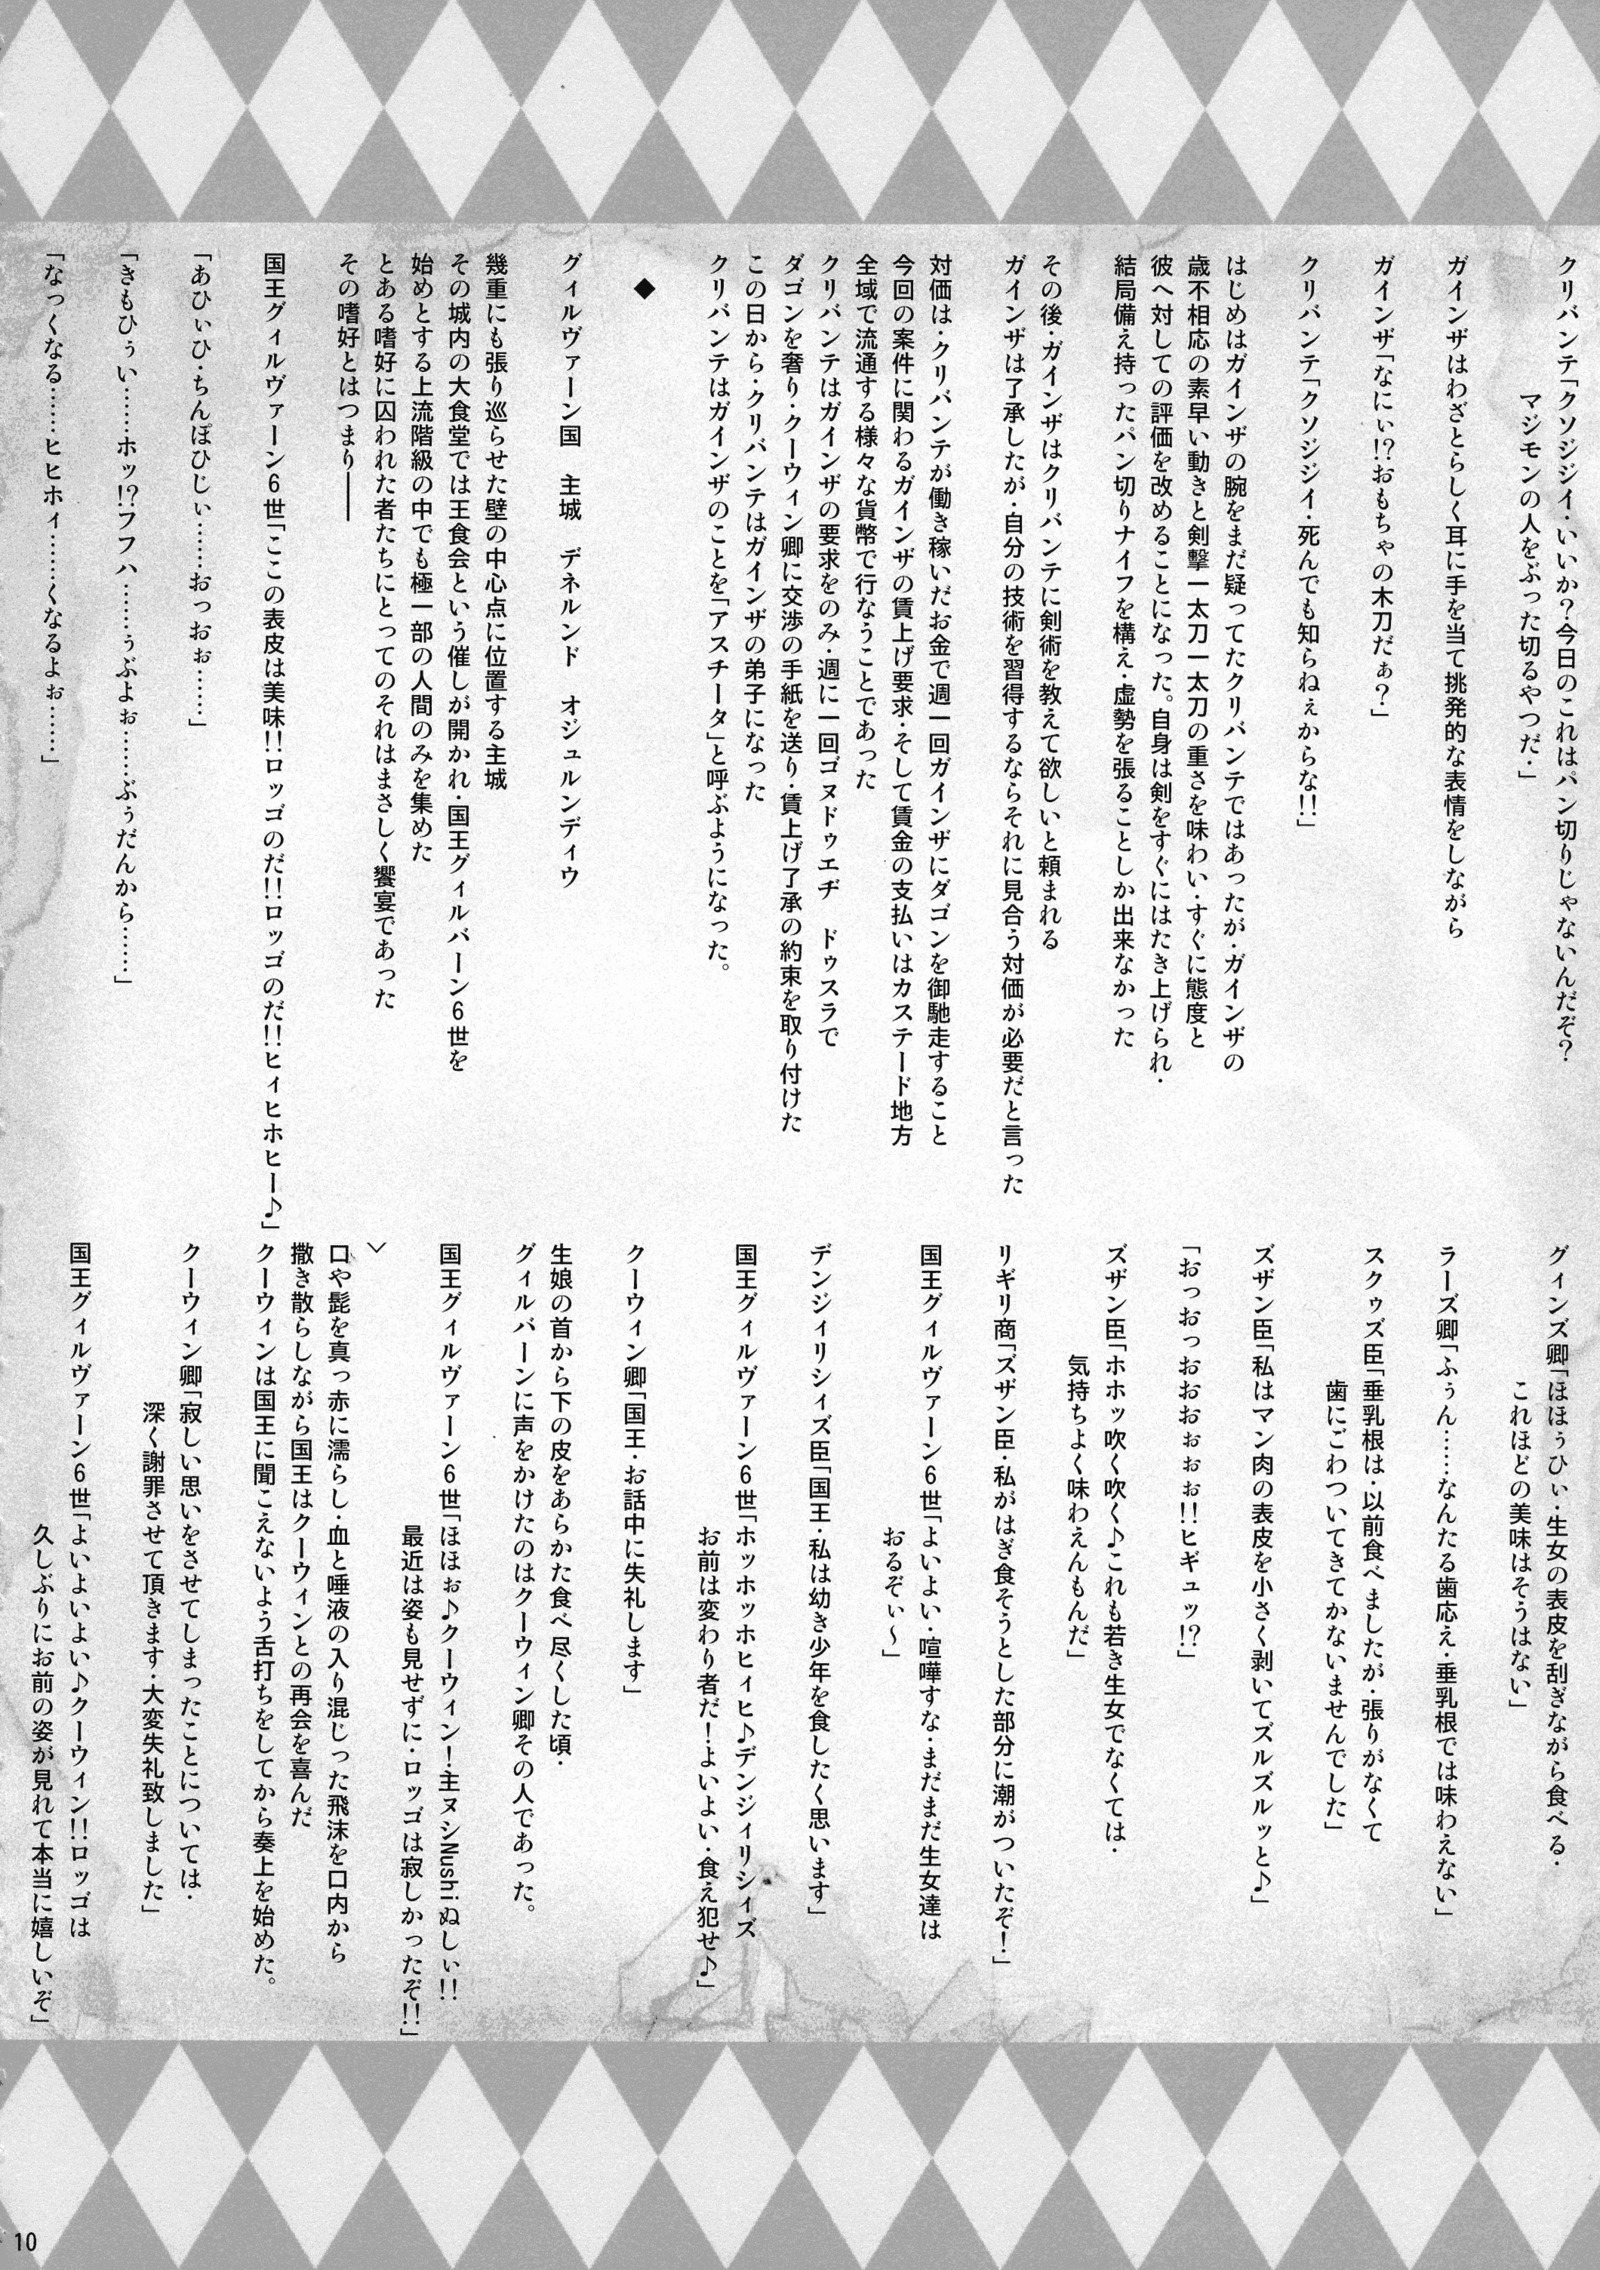 クリバンテ「クソジジイ・いいか？今日のこれはパン切りじゃないんだぞ？
マジモンの人をぶった切るやつだ・」
ガインザはわざとらしく耳に手を当て挑発的な表情をしながら
ガインザ「なにぃ!?おもちゃの木刀だぁ？」
クリバンテ「クソジジイ・死んでも知らねぇからな!!」
はじめはガインザの腕をまだ疑ってたクリバンテではあったが・ガインザの
歳不相応の素早い動きと剣撃一太刀一太刀の重さを味わい・すぐに態度と
彼へ対しての評価を改めることになった。自身は剣をすぐにはたき上げられ・
結局備え持ったパン切りナイフを構え・虚勢を張ることしか出来なかった
その後・ガインザはクリバンテに剣術を教えて欲しいと頼まれる
ガインザは了承したが・自分の技術を習得するならそれに見合う対価が必要だと言った
対価は・クリバンテが働き稼いだお金で週一回ガインザにダゴンを御馳走すること
今回の案件に関わるガインザの賃上げ要求・そして賃金の支払いはカステード地方
全域で流通する様々な貨幣で行なうことであった
クリバンテはガインザの要求をのみ・週に一回ゴヌドゥエヂ　ドゥスラで
ダゴンを奢り・クーウィン卿に交渉の手紙を送り・賃上げ了承の約束を取り付けた
この日から・クリバンテはガインザの弟子になった
クリバンテはガインザのことを「アスチータ」と呼ぶようになった。
◆
グィルヴァーン国　主城　デネルンド　オジュルンディウ
幾重にも張り巡らせた壁の中心点に位置する主城
その城内の大食堂では王食会という催しが開かれ・国王グィルバーン6世を
始めとする上流階級の中でも極一部の人間のみを集めた
とある嗜好に囚われた者たちにとってのそれはまさしく饗宴であった
その嗜好とはつまり――
国王グィルヴァーン6世「ここの表皮は美味!!ロッゴのだ!!ロッゴのだ!!ヒィヒホヒー♪」
「あひぃひ・ちんぽひじぃ……おっおぉ……」
「きもひぅい……ホッ!?フフハ……ぅぶよぉ……ぶぅだんから……」
「なっくなる……ヒヒホィ……くなるよぉ……」
グィンズ卿「ほほぅひぃ・生女の表皮を刮ぎながら食べる・
これほどの美味はそうはない」
ラーズ卿「ふぅん……なんたる歯応え・垂乳根では味わえない」
スクゥズ臣「垂乳根は・以前食べましたが・張りがなくて
歯にごわついてきてかないませんでした」
ズザン臣「私はマン肉の表皮を小さく剥いてズルズルッと♪」
「おっおっおおおぉぉぉ!!ヒギュッ!?」
ズザン臣「ホホッ吹く吹く♪これも若き生女でなくては・
気持ちよく味わえんもんだ」
リギリ商「ズザン臣・私がはぎ食そうとした部分に潮がついたぞ！」
国王グィルヴァーン6世「よいよい・喧嘩すな・まだまだ生女達は
おるぞぃ～」
クーウィン卿「国王・お話中に失礼します」
生娘の首から下の皮をあらかた食べ尽くした頃・
グィルバーンに声をかけたのはクーウィン卿その人であった。
国王グィルヴァーン6世「ほほぉ♪クーウィン！主ヌシNushiぬしぃ!!
最近は姿も見せずに・ロッゴは寂しかったぞ!!」
﹀
口や髭を真っ赤に濡らし・血と唾液の入り混じった飛沫を口内から
撒き散らしながら国王はクーウィンとの再会を喜んだ
クーウィンは国王に聞こえないよう舌打ちをしてから奏上を始めた。
クーウィン卿「寂しい思いをさせてしまったことについては・
深く謝罪させて頂きます・大変失礼致しました」
国王グィルヴァーン6世「よいよいよい♪クーウィン!!ロッゴは
久しぶりにお前の姿が見れて本当に嬉しいぞ」
10